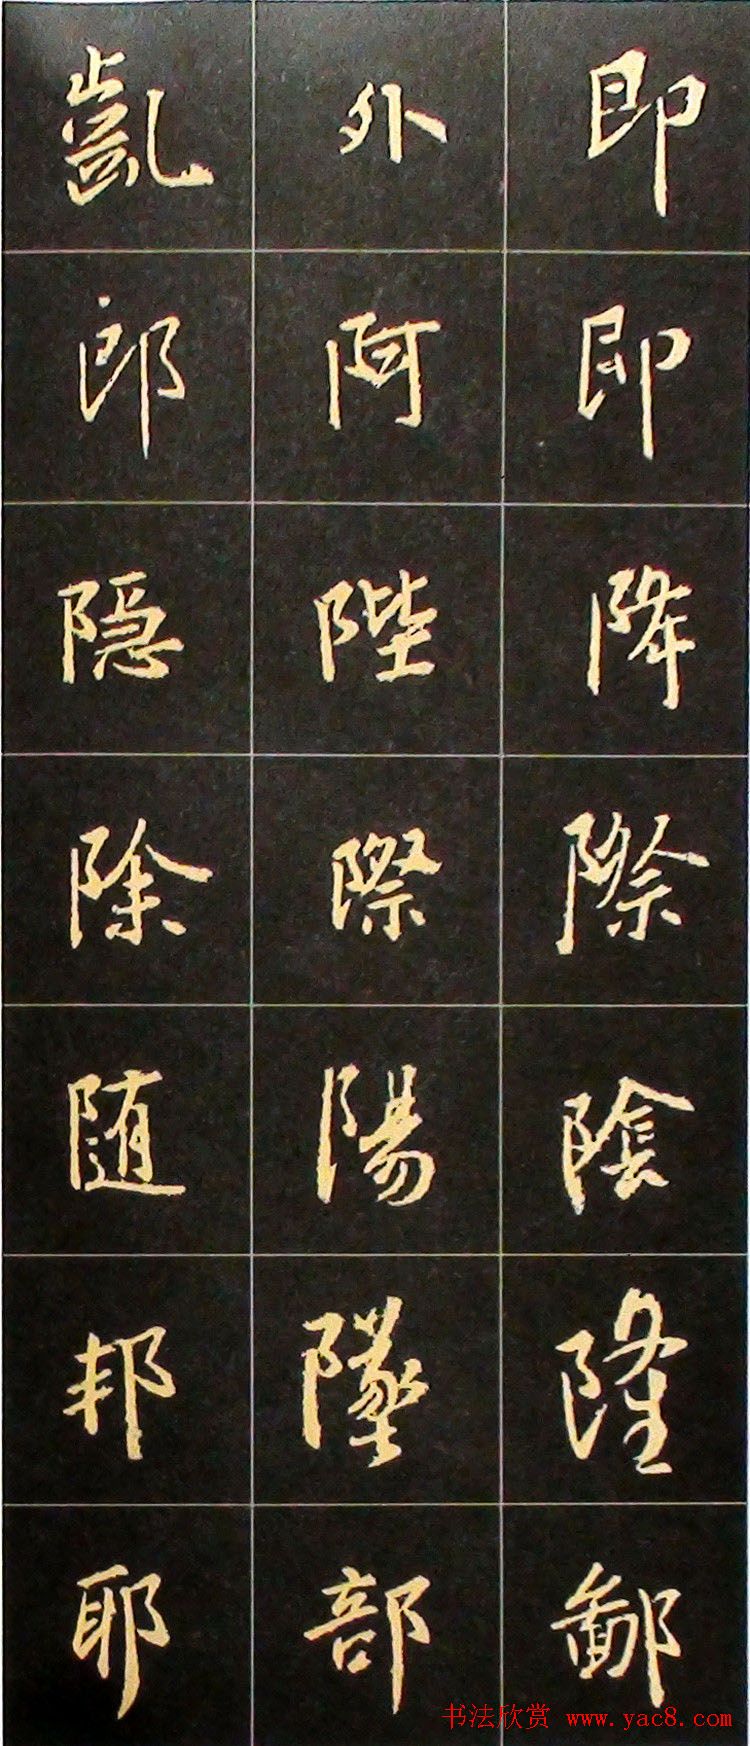 即即降際陰隆鄙
外阿陛際陽墜部
齔郎隐除随邦耶
书法欣赏 www.yac8.com